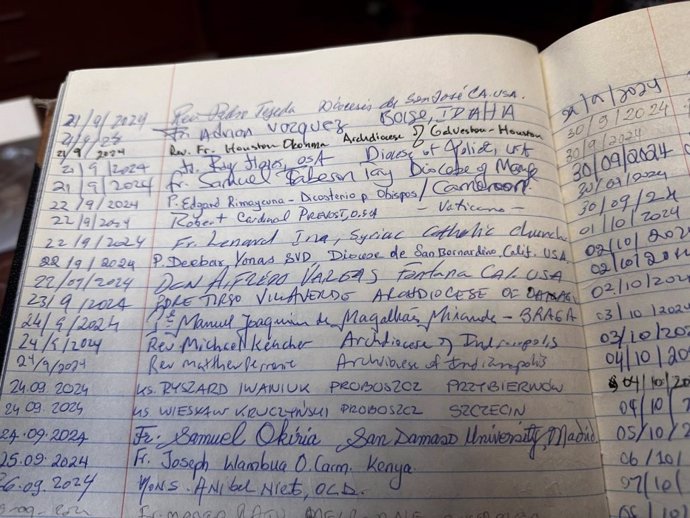 21/9/2024 Rev. Pedro Tejeda Diocesis de San José CA. USA.
21/9/24 Fr. Adrian Vazquez BOISE, IDAHA
21/9/2024 Rev. Fr. Houston Okonma Archdiocese of Galveston-Houston
21/9/2024 Fr. Ray Flores, OSA Diocese of Joliet, USA
21/9/2024 Fr. Samuel Diocese of / Cameroon
22/9/2024 P. Edgard Rimaycuna - Dicasterio p Obispos
22/9/2024 Robert Cardinal PREVOST, O.S.A - Vaticano -
22/9/2024 Fr. Lenard Ina, Syriac Catholic church
22/9/2024 P. Deebar Yonas SVD, Diocese de San Bernardino, Calif. USA
22/09/2024 DON ALFREDO VARGAS Fontana CAL. USA
23/9/2024 PDRE TIRSO VILLAVERDE ARCHDIOCESE OF
24/9/2024 Pe Manuel Joaquim de Magalhães Miranda - BRAGA
24/9/2024 Rev Michael Keucher Archdiocese of Indianapolis
24/9/2024 Rev Matthew Archdiocese of Indianapolis
24.09.2024 KS. RYSZARD IWANIUK PROBOSZCZ PRZYBIERNÓW
24.09.2024 KS WIESŁAW KRUCZYŃSKI PROBOSZCZ SZCZECIN
24.09.2024 Fr. Samuel Okiria San Damaso University, Madrid
25.09.2024 Fr. Joseph Wambua O.Carm. Kenya
26.09.2024 Mons. Anibal Nieto, OCD.
30/9/2024
30/9/2024
30/09/2024
30/09/2024
30/09/24
01/10/2024
02/10/2024
02/10/2024
02/10/2024
03/10/202
03/10/20
04/10/20
04/10/20
04/10/2
05/10/2
06/10/
07/10/